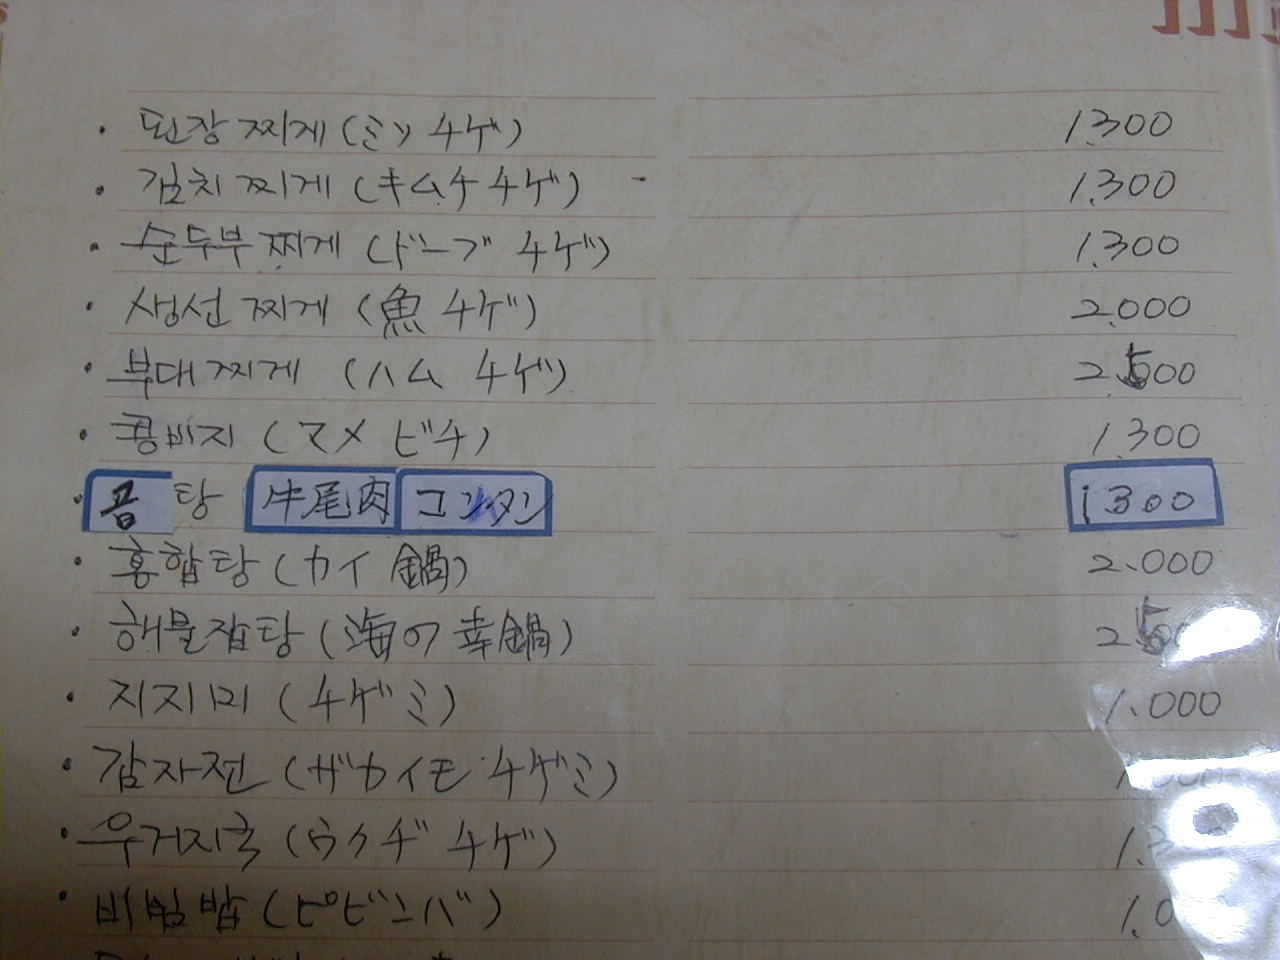 · 된장찌게 (ミソ チゲ) 1.300
· 김치찌게 (キムチ チゲ) - 1.300
· 순두부찌게 (ドーブ チゲ) 1.300
· 생선찌게 (魚 チゲ) 2.000
· 부대찌게 (ハム チゲ) 2.500
· 콩비지 (マメ ビチ) 1.300
· 곰탕 牛尾肉 コンタン 1300
· 홍합탕 (カイ 鍋) 2.000
· 해물잡탕 (海の幸鍋) 2.500
· 지지미 (チゲミ) 1.000
· 감자전 (ザカイモ チゲミ)
· 우거지국 (ウクヂ チゲ)
· 비빔밥 (ピビンバ)